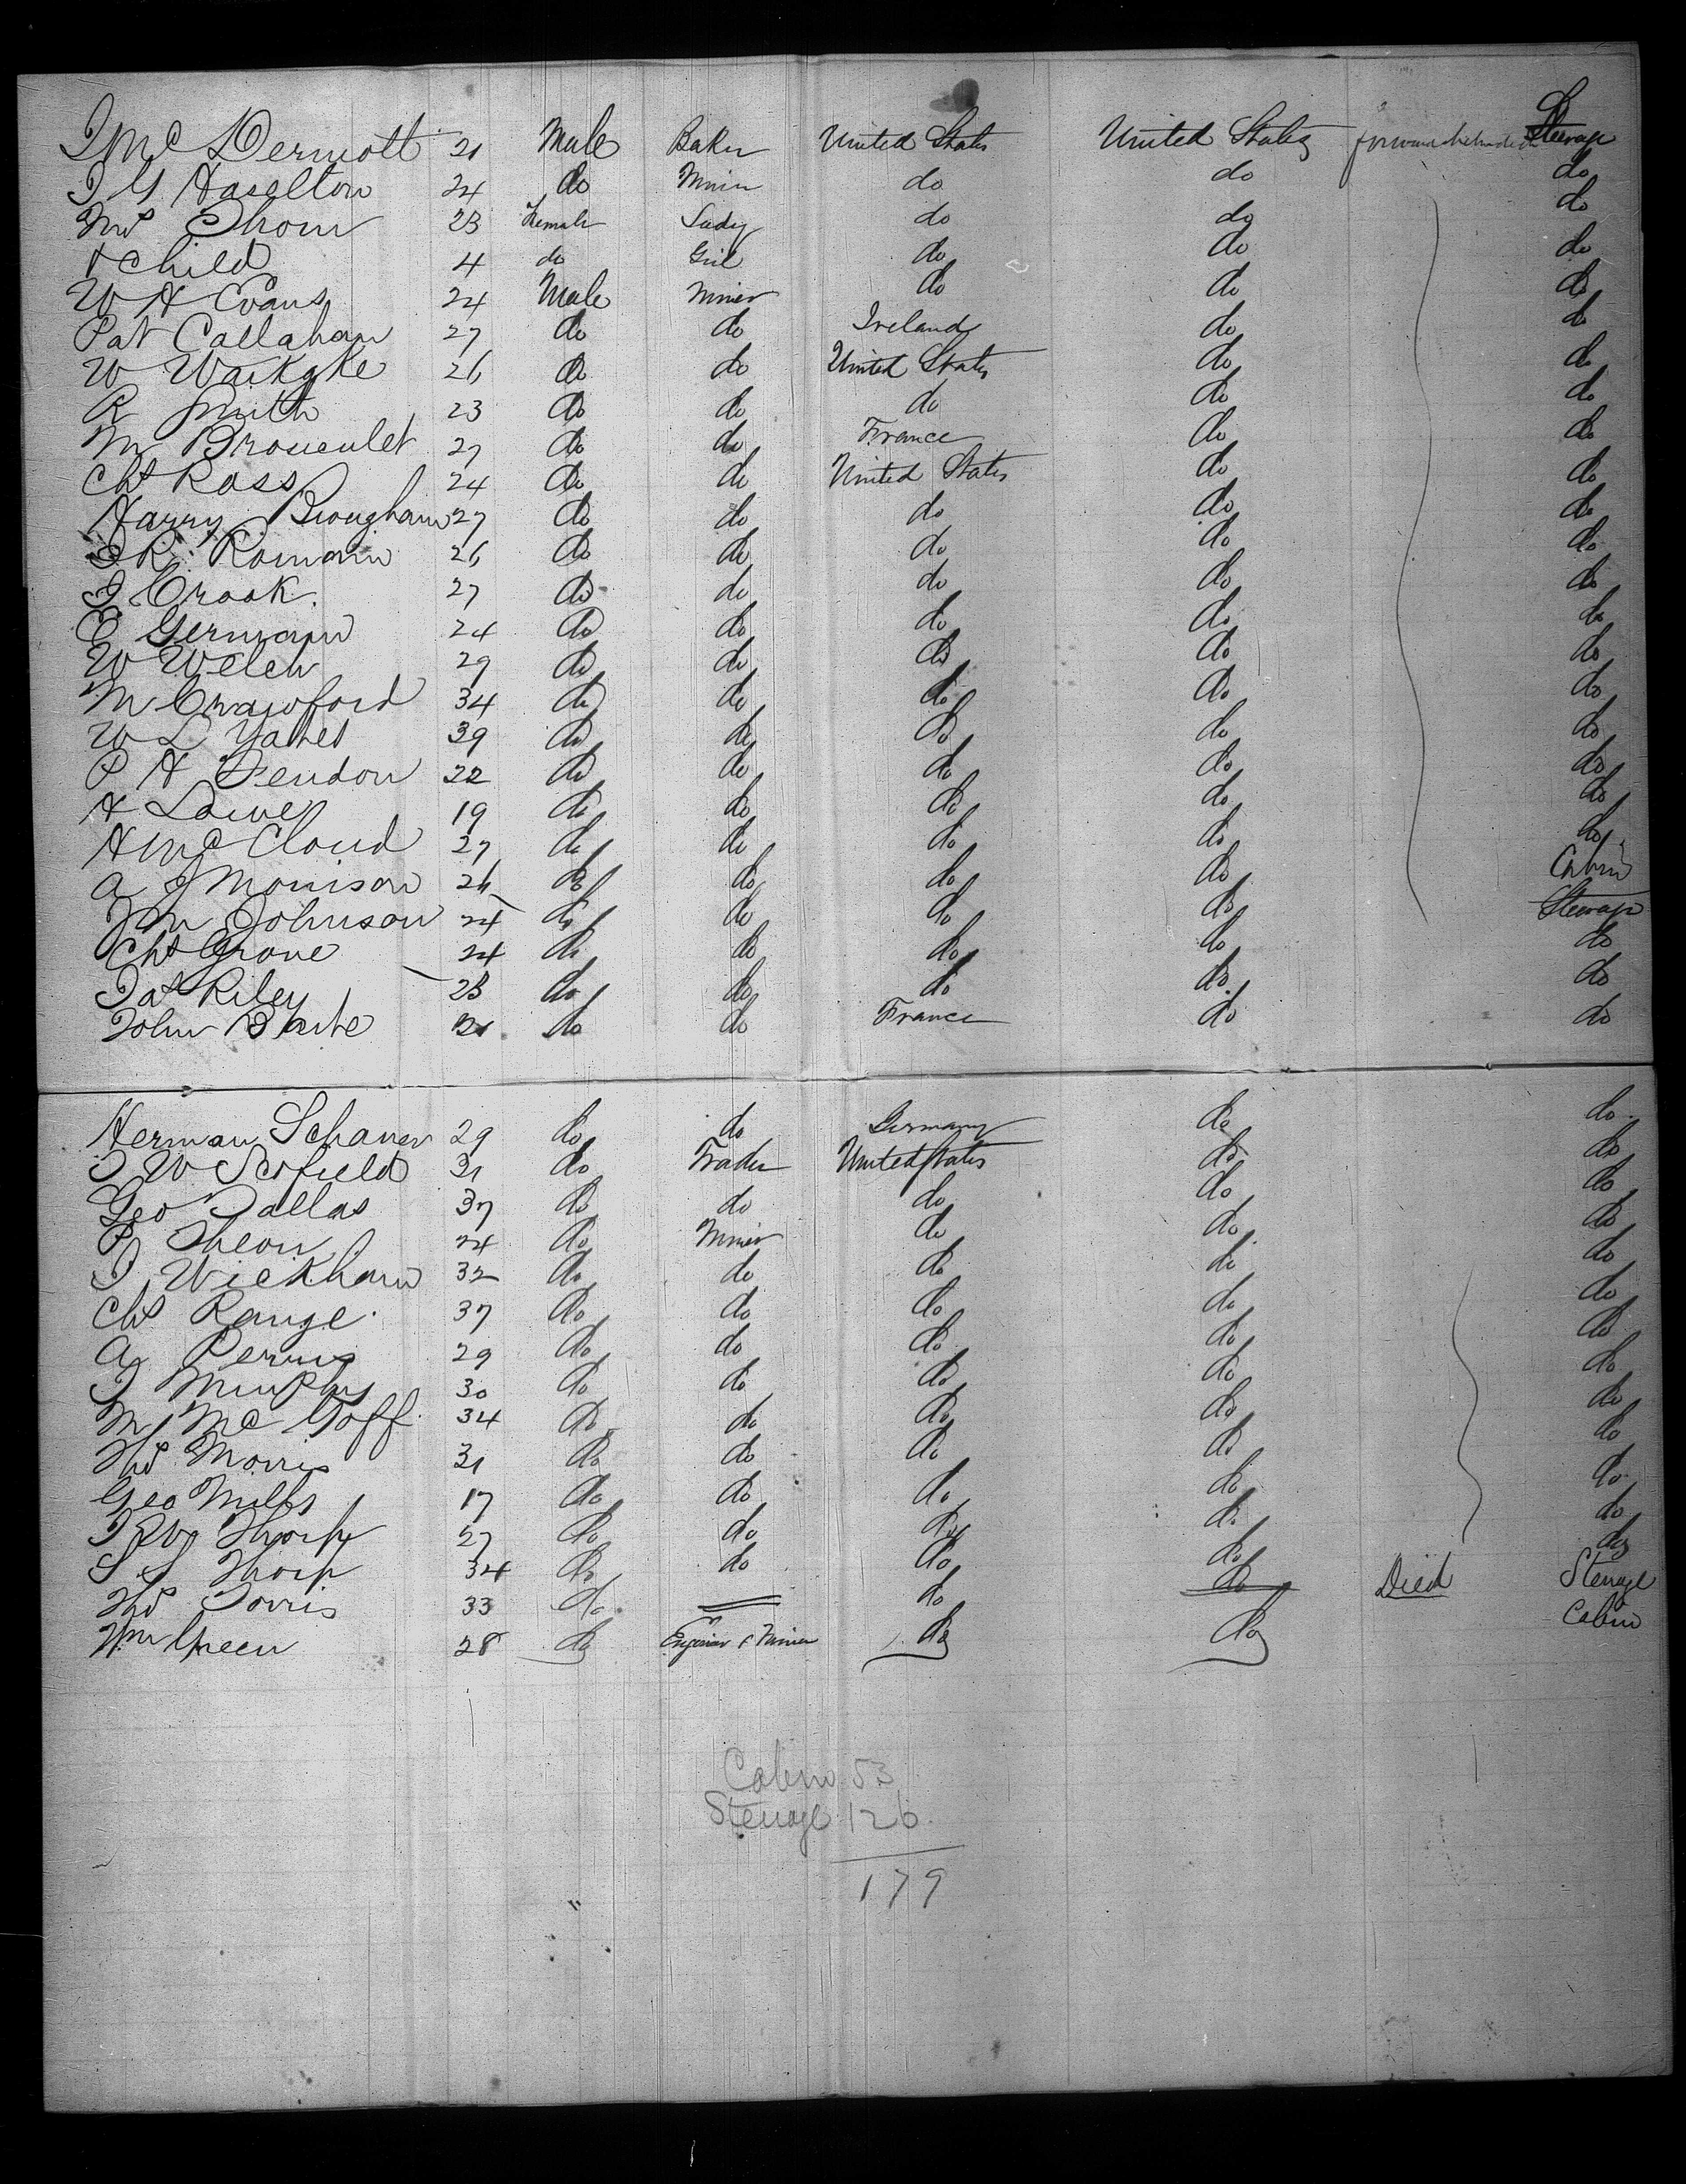 J Mc Dermott 21 Male Baker United States United States Steerage
J G Haselton 24 do Miner do do do
Mrs Thom 23 Female Lady do do do
& Child 4 do Girl do do do
W H Evans 24 Male Miner do do do
Pat Callahan 27 do do Ireland do do
W 26 do do United States do do
R Smith 23 do do do do do
M 27 do do France do do
Chs Ross 24 do do United States do do
Harry Brougham 27 do do do do do
R Romain 26 do do do do do
J Crook 27 do do do do do
E Germain 24 do do do do do
W Welch 29 do do do do do
M Crawford 34 do do do do do
W L Yates 39 do do do do do
P H Pendon 22 do do do do do
H Lowe 19 do do do do do
H McCloud 27 do do do do do
A J Morrison 26 do do do do Cabin
Wm Johnson 24 do do do do Steerage
Chs Grove 24 do do do do do
Pat Riley 23 do do do do do
John do do France do do
Herman Schaner 29 do do Germany do do
J W Scofield 31 do Trader United States do do
Geo Dallas 37 do do do do do
P Sheon 24 do Miner do do do
J Wickham 32 do do do do do
Chs Range 37 do do do do do
A Perris 29 do do do do do
J Murphy 30 do do do do do
M Mc Goff 34 do do do do do
Ths Morris 31 do do do do do
Geo Mills 17 do do do do do
Thorp 27 do do do do do
S S Thorp 34 do do do do do
Ths Torris 33 do do do Died Steerage
Wm Green 28 do Engineer & Miner do do Cabin
Cabin 53
Steerage 126
179